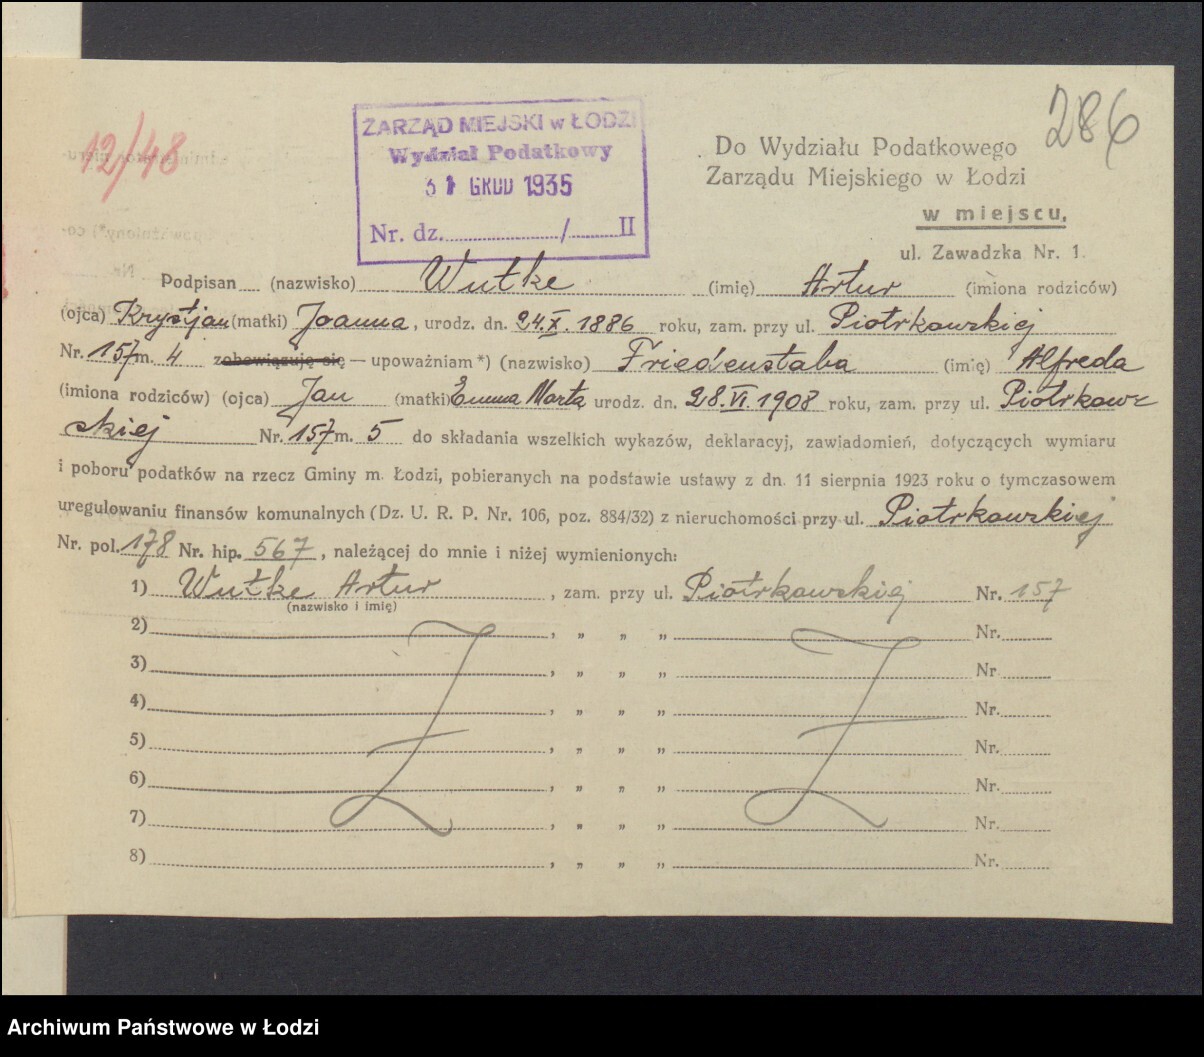 286
12/48
ZARZĄD MIEJSKI w ŁODZI
Wydział Podatkowy
31 GRUD 1935
Nr. dz. / II
Do Wydziału Podatkowego
Zarządu Miejskiego w Łodzi
w miejscu,
ul. Zawadzka Nr. 1.
Podpisan (nazwisko) Wutke (imię) Artur (imiona rodziców)
(ojca) Krystjan (matki) Joanna, urodz. dn. 24.X.1886 roku, zam. przy ul. Piotrkowskiej
Nr. 157 m. 4 zobowiązuję się — upoważniam *) (nazwisko) Friedenstaba (imię) Alfreda
(imiona rodziców) (ojca) Jan (matki) Emma Marta urodz. dn. 28.VI.1908 roku, zam. przy ul. Piotrkow-
skiej Nr. 157 m. 5 do składania wszelkich wykazów, deklaracyj, zawiadomień, dotyczących wymiaru
i poboru podatków na rzecz Gminy m. Łodzi, pobieranych na podstawie ustawy z dn. 11 sierpnia 1923 roku o tymczasowem
uregulowaniu finansów komunalnych (Dz. U. R. P. Nr. 106, poz. 884/32) z nieruchomości przy ul. Piotrkowskiej
Nr. pol. 178 Nr. hip. 567, należącej do mnie i niżej wymienionych:
1) Wutke Artur, zam. przy ul. Piotrkowskiej Nr. 157
(nazwisko i imię)
2) , „ „ „ Nr.
3) , „ „ „ Nr.
4) , „ „ „ Nr.
5) , „ „ „ Nr.
6) , „ „ „ Nr.
7) , „ „ „ Nr.
8) , „ „ „ Nr.
Archiwum Państwowe w Łodzi